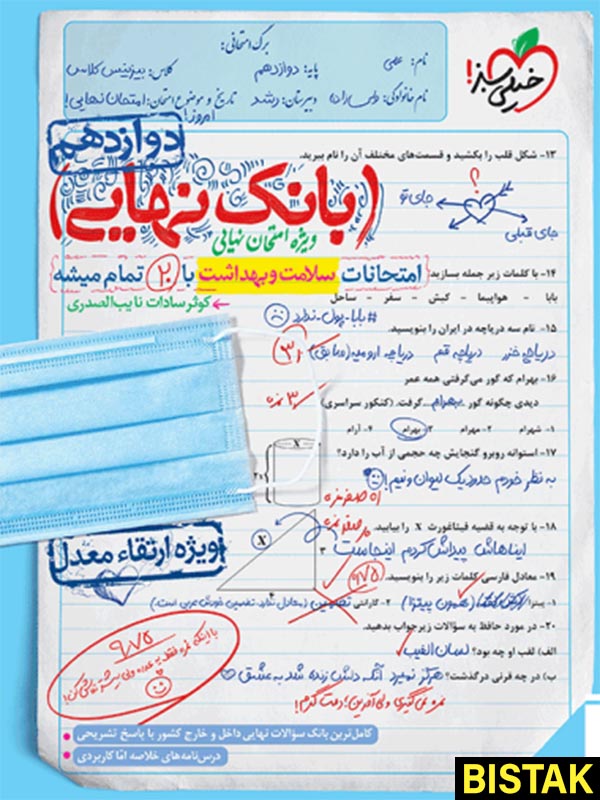 برگ امتحانی:
نام:
پایه: دوازدهم
کلاس: بیزینس کلاس
نام خانوادگی:
دبیرستان: رشد
تاریخ و موضوع امتحان: امتحان نهایی!
امروز!
خیلی سبز!
دوازدهم
(بانک نهایی)
ویژه امتحان نهائی
امتحانات سلامت و بهداشت با ۲۰ تمام میشه
کوثر سادات نایب‌الصدری
۱۳- شکل قلب را بکشید و قسمت‌های مختلف آن را نام ببرید.
؟
جای تو
جای قبلی
۱۴- با کلمات زیر جمله بسازید:
بابا - هواپیما - کیش - سفر - ساحل
#بابا-پول-ندارد
۱۵- نام سه دریاچه در ایران را بنویسید.
دریاچه خزر دریاچه قم دریاچه ارومیه (سابق)
۱۶- بهرام که گور می‌گرفتی همه عمر
دیدی چگونه گور بهرام گرفت. (کنکور سراسری)
۱- شهرام ۲- مهرام ۳- بهرام ۴- آرام
۱۷- استوانه روبرو گنجایش چه حجمی از آب را دارد؟
X
به نظر خودم حدود یک لیوان و نیم!
۱۸- با توجه به قضیه فیثاغورث X را بیابید.
X
۳
۴
ایناهاش پیداش کردم اینجاست
۱۹- معادل فارسی کلمات زیر را بنویسید.
۱- پیتزا
۲- گارانتی
۲۰- در مورد حافظ به سؤالات زیر جواب بدهید.
الف) لقب او چه بود؟ لسان الغیب
ب) در چه قرنی درگذشت؟ هرگز نمیرد آنکه دلش زنده شد به عشق
نمره نمی‌گیری ولی آفرین! دمت گرم!
ویژه ارتقاء معدل
۹/۷۵
کامل‌ترین بانک سؤالات نهایی داخل و خارج کشور با پاسخ تشریحی
درس‌نامه‌های خلاصه امّا کاربردی
BISTAK